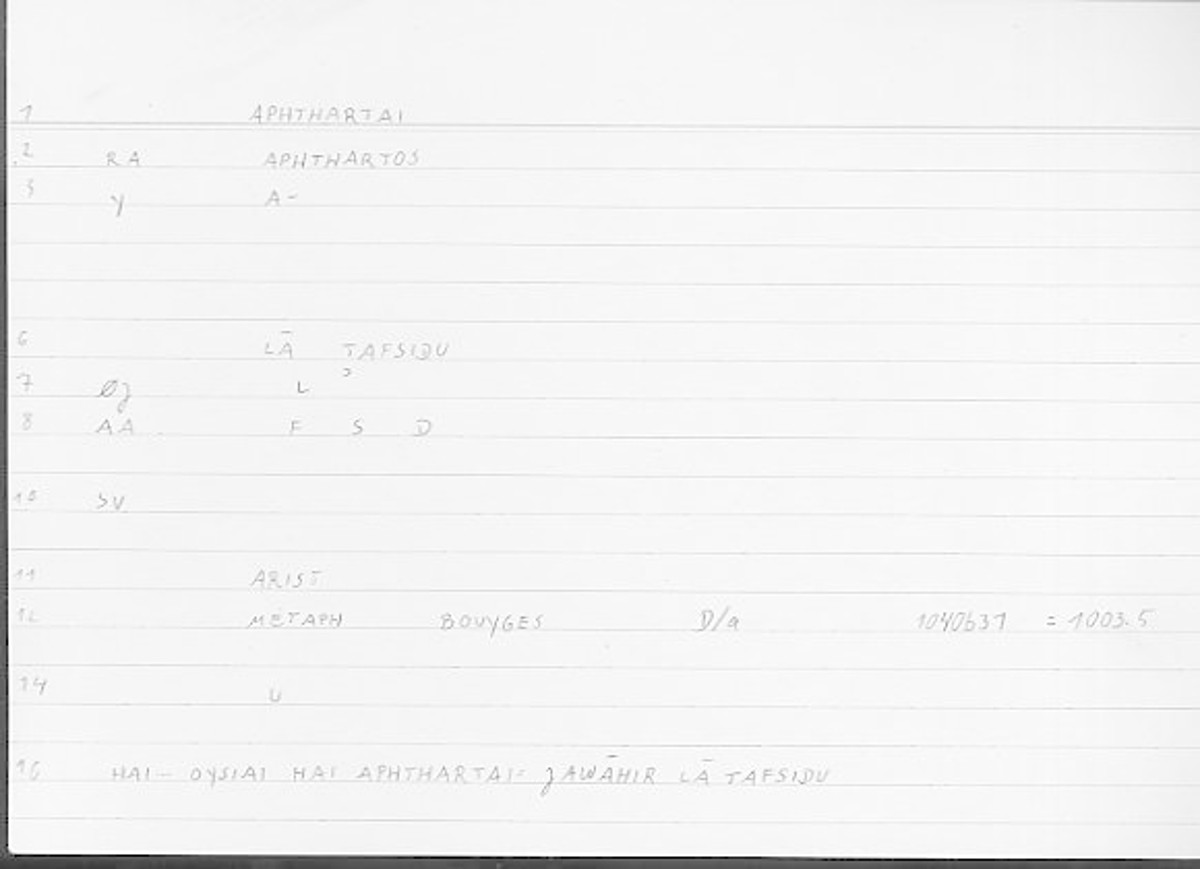 1 APHTHARTAI
2 RA APHTHARTOS
3 y A-
6 LĀ TAFSIDU
7 Øj L ɔ
8 AA F S D
10 SV
11 ARIST
12 METAPH BOUYGES D/a 1040b31 = 1003.5
14 U
16 HAI- OYSIAI HAI APHTHARTAI= jAWĀHIR LĀ TAFSIDU